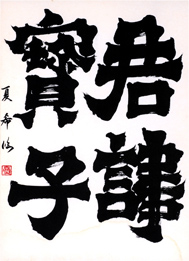 君諱
寶子
夏希